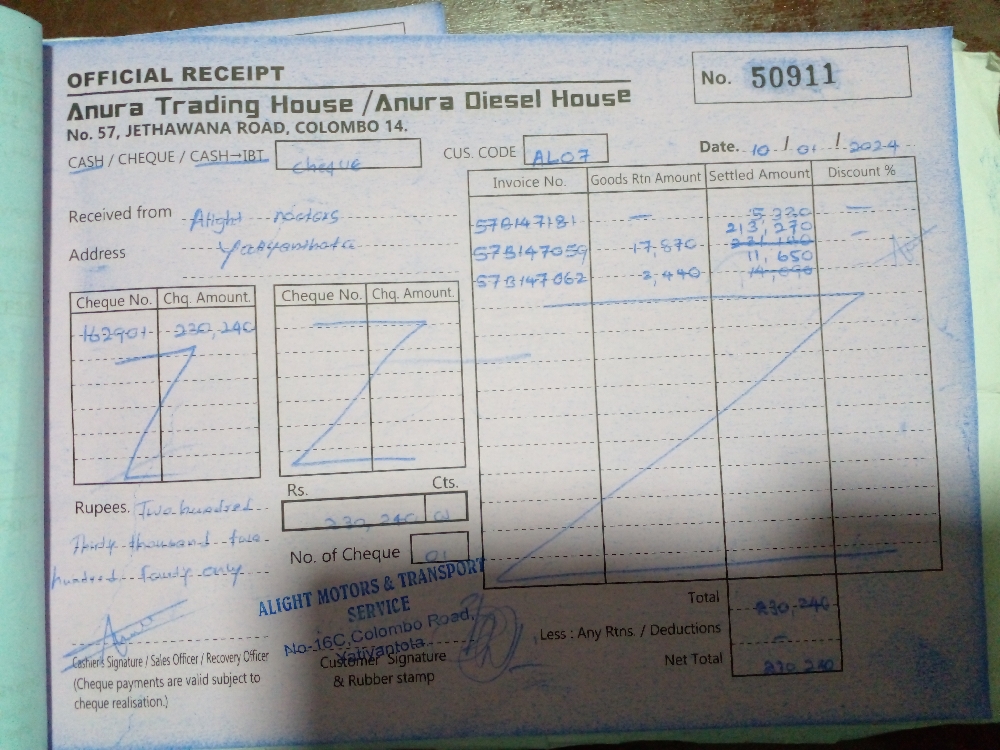 OFFICIAL RECEIPT
No. 50911
Anura Trading House / Anura Diesel House
No. 57, JETHAWANA ROAD, COLOMBO 14.
CASH / CHEQUE / CASH→IBT. cheque
CUS. CODE AL07
Date. 10 / 01 / 2024
Invoice No. Goods Rtn Amount Settled Amount Discount %
57B147181 — 5,320 —
213,270
57B147059 17,870 231,140 —
11,650
57B147062 2,440 14,090
Received from Alight Motors
Address Yatiyanthota
Cheque No. Chq. Amount. Cheque No. Chq. Amount.
162901 230,240
Rupees. Two hundred
Thirty thousand two
hundred fourty only
Rs. Cts.
230,240 00
No. of Cheque 01
ALIGHT MOTORS & TRANSPORT
SERVICE
No-16C, Colombo Road,
Yatiyantota.
Cashier's Signature / Sales Officer / Recovery Officer
(Cheque payments are valid subject to
cheque realisation.)
Customer Signature
& Rubber stamp
Total 230,240
Less : Any Rtns. / Deductions —
Net Total 230,240